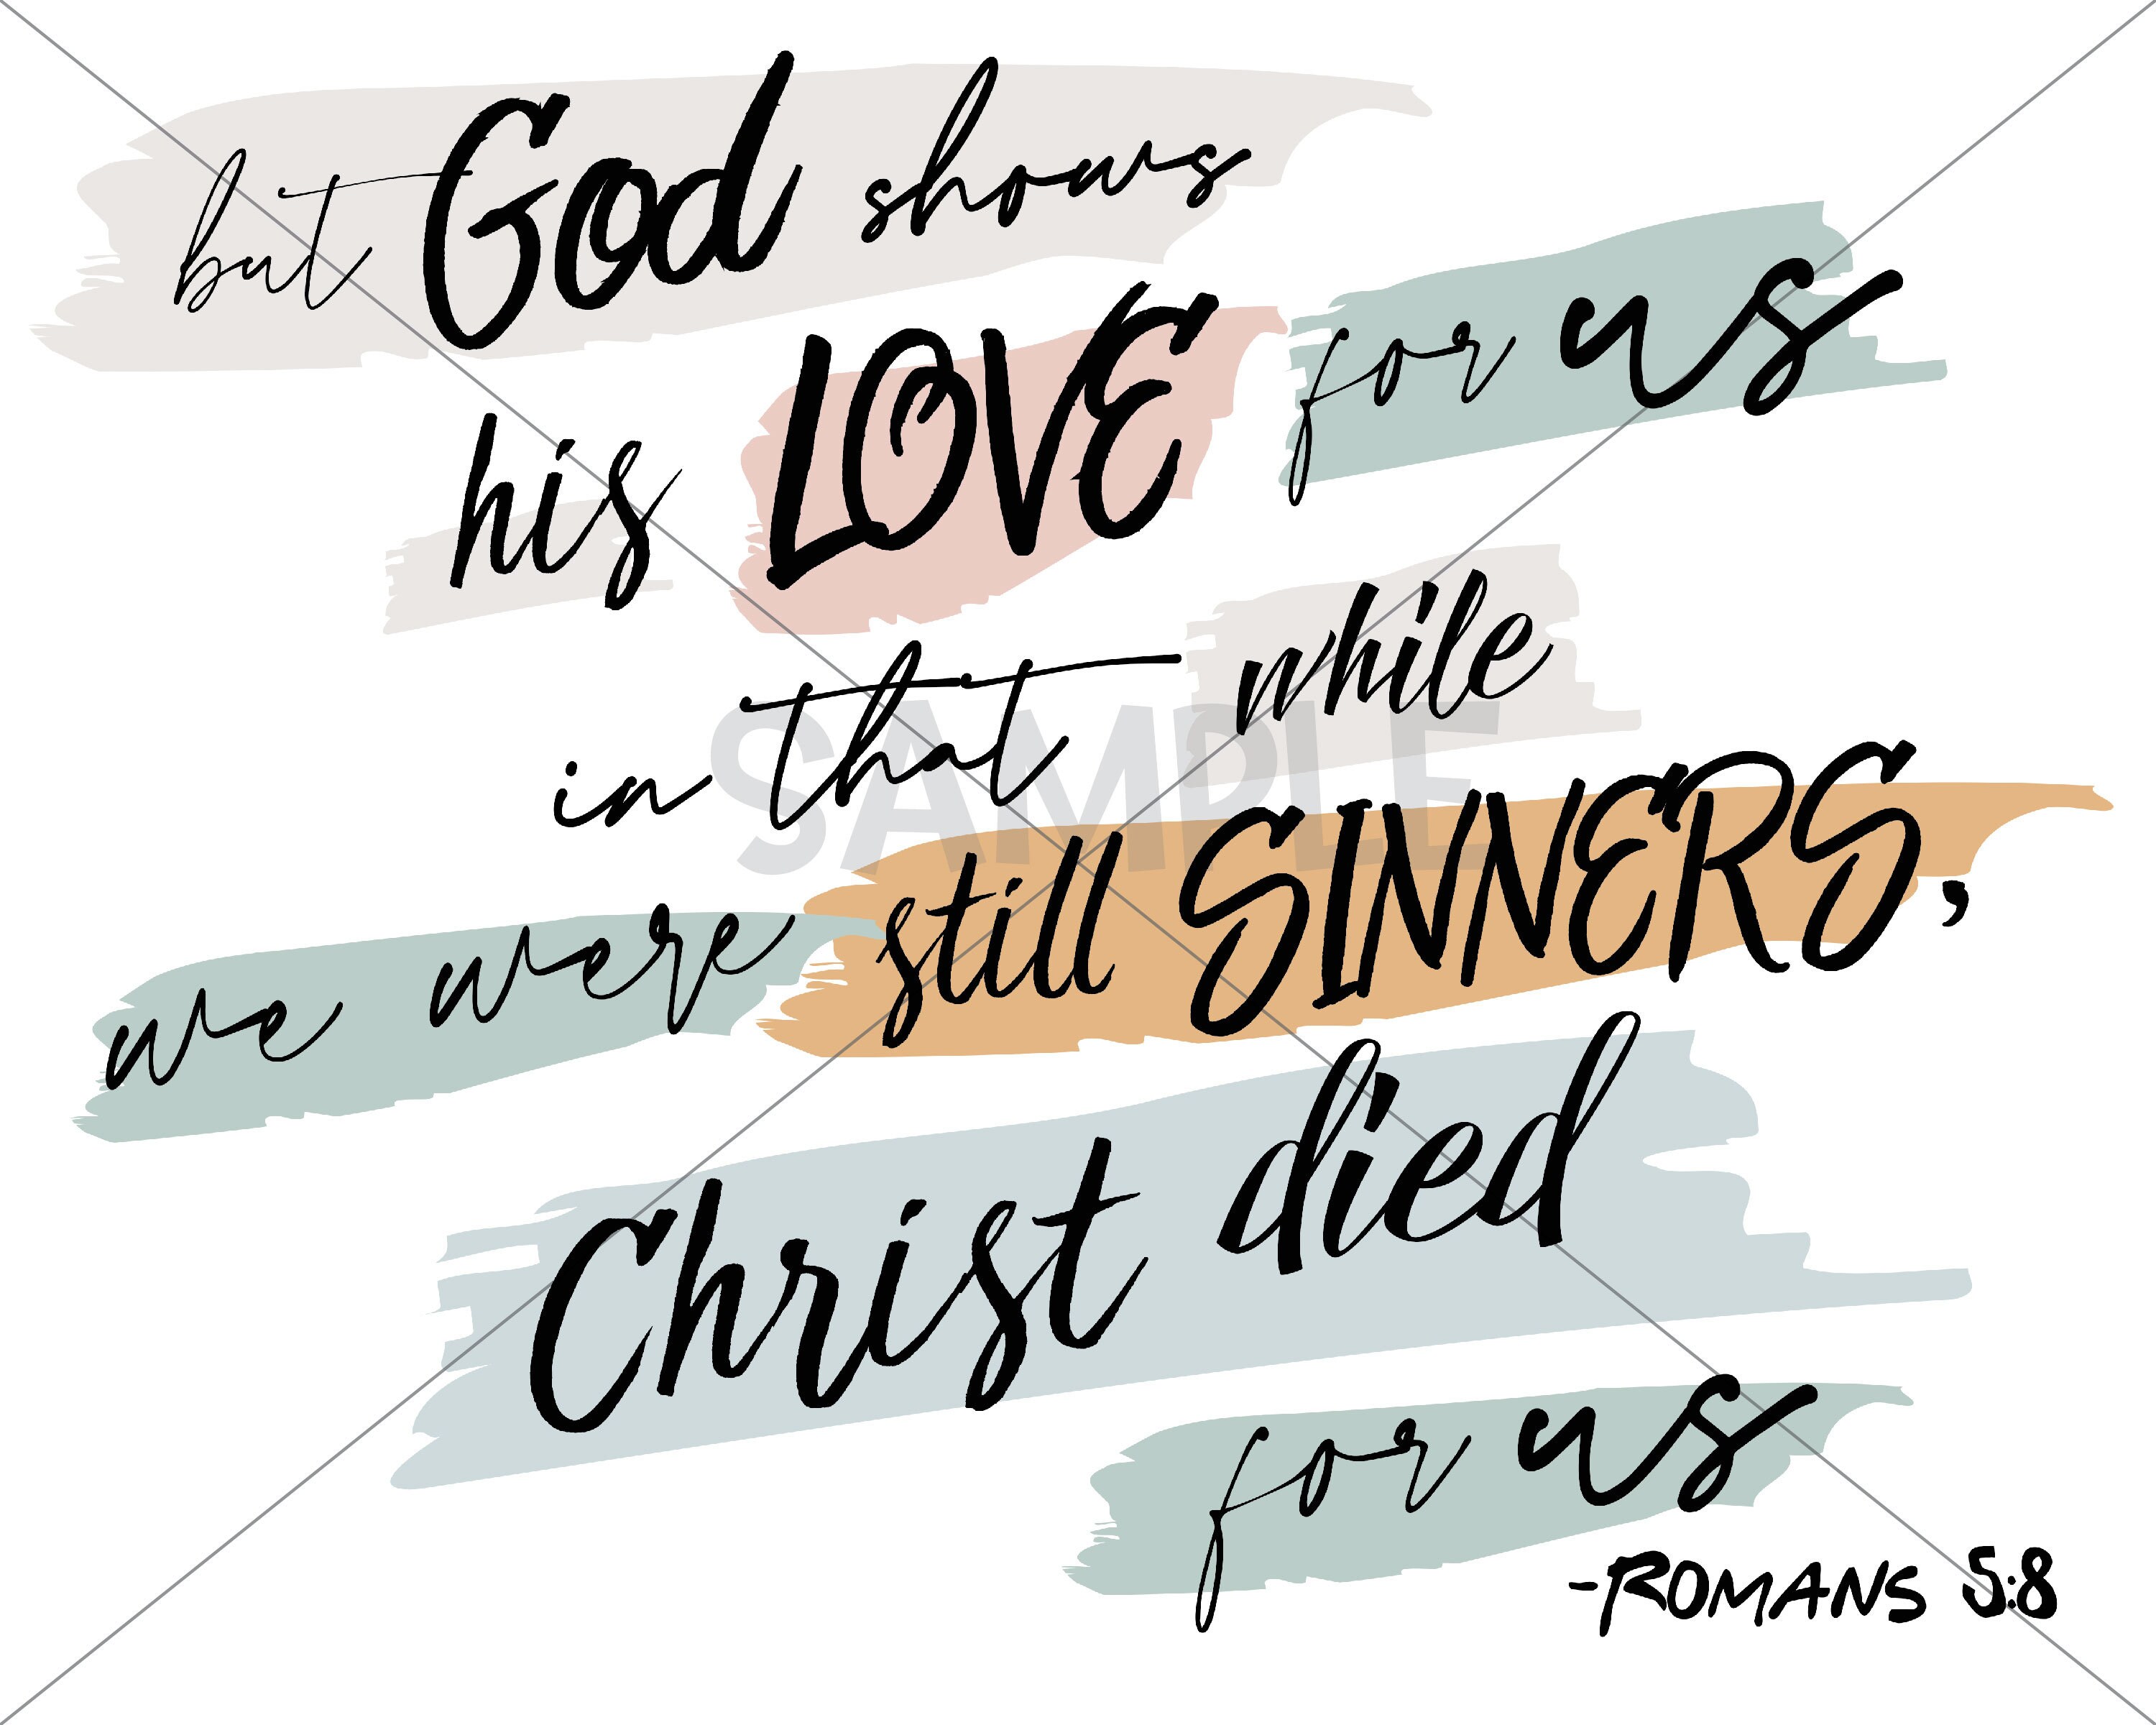 but God shows
his LOVE for us
in that while
SAMPLE
we were still SINNERS,
Christ died
for us
-ROMANS 5:8